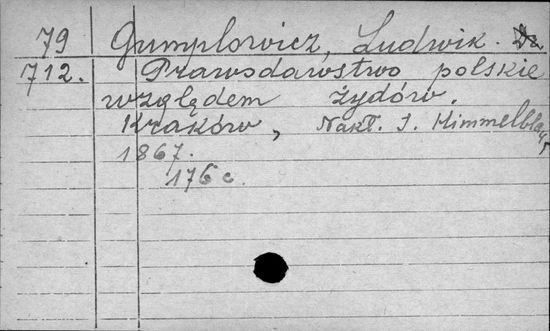 79 Gumplowicz, Ludwik. Dr.
712. Prawodawstwo polskie
względem żydów.
Kraków, Nakł. J. Himmelblau,
1867.
176 c.